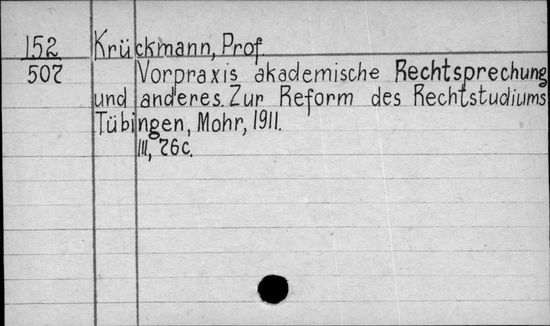 152 Krückmann, Prof.
507 Vorpraxis akademische Rechtsprechung
und anderes. Zur Reform des Rechtstudiums
Tübingen, Mohr, 1911.
III, 76c.